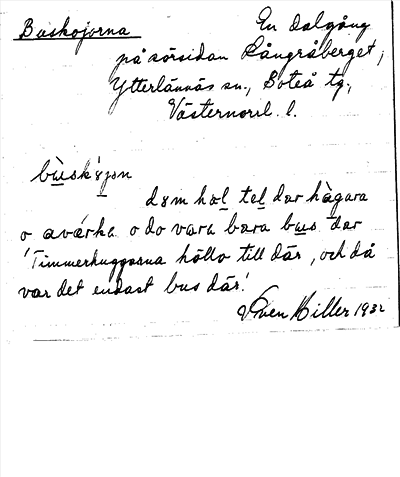 Buskojorna
En dalgång
på sörsidan Långråberget,
Ytterlännäs sn., Boteå tg.,
Västernorrl. l.
bùskʹöjon
döm höl tel dar hàgara
o avárka o do vara bara bus dar
'Timmerhuggarna höllo till där, och då
var det endast bus där.'
Sven Hiller 1932